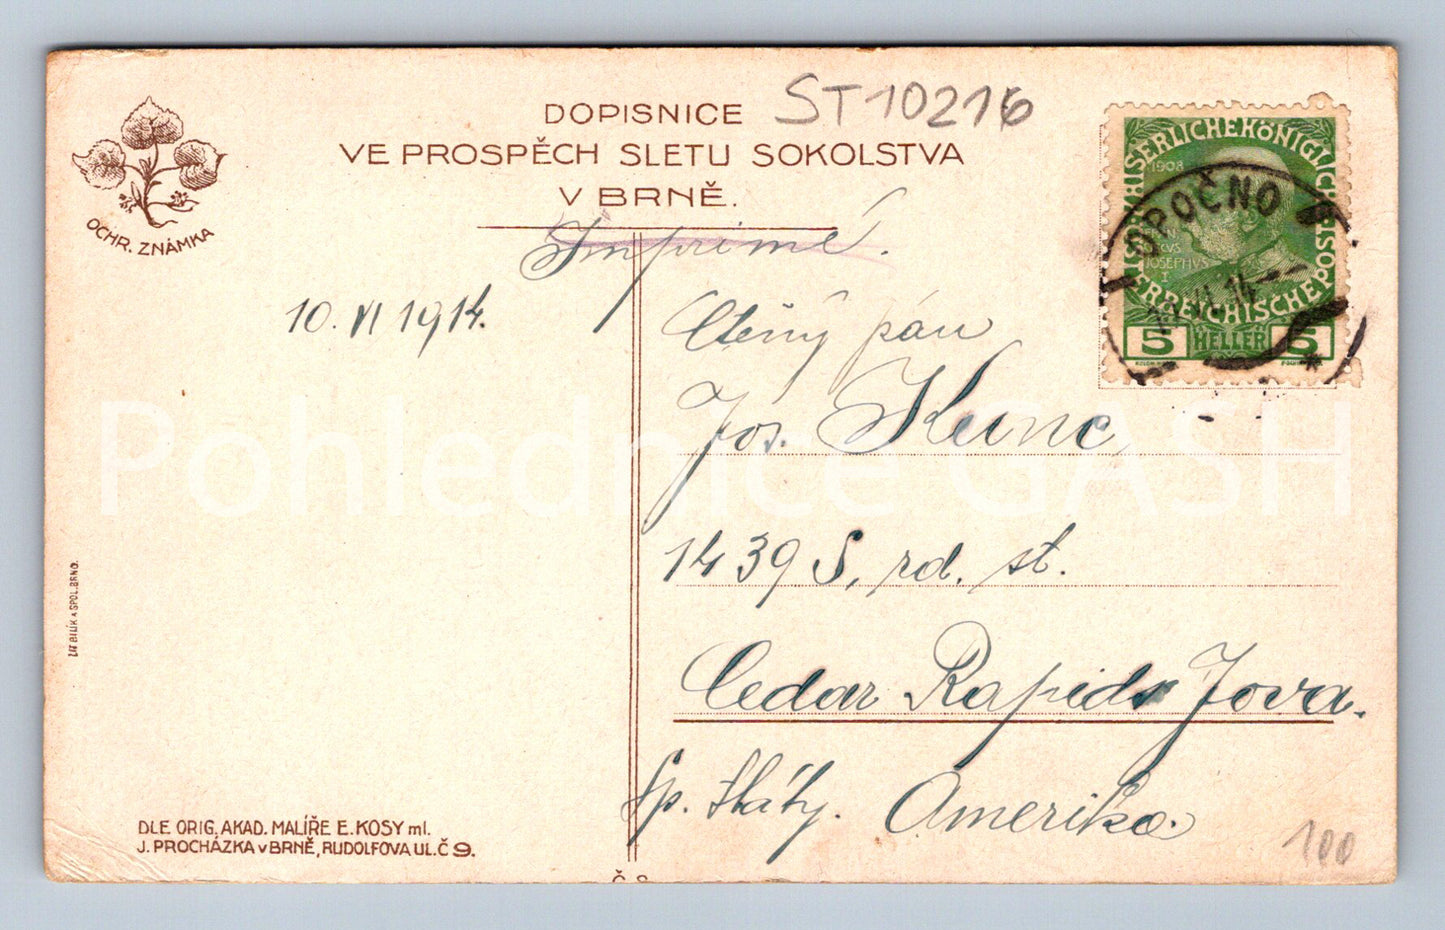 DOPISNICE
VE PROSPĚCH SLETU SOKOLSTVA
V BRNĚ.
ST10216
OCHR. ZNÁMKA
Imprimé.
10. VI 1914.
KAISERLICHEKÖNIGLICHE
1908
OPOČNO
JOSEPHVS
I.
ÖSTERREICHISCHE POST
VI 14
5 HELLER 5
Ctěný pán
Jos. Kunc
1439 S, rd. st.
Cedar Rapids Jova.
Sp. Státy. Amerika.
Pohlednice GASH
LIT BILÍK A SPOL. BRNO.
DLE ORIG. AKAD. MALÍŘE E. KOSY ml.
J. PROCHÁZKA V BRNĚ, RUDOLFOVA UL. Č 9.
100